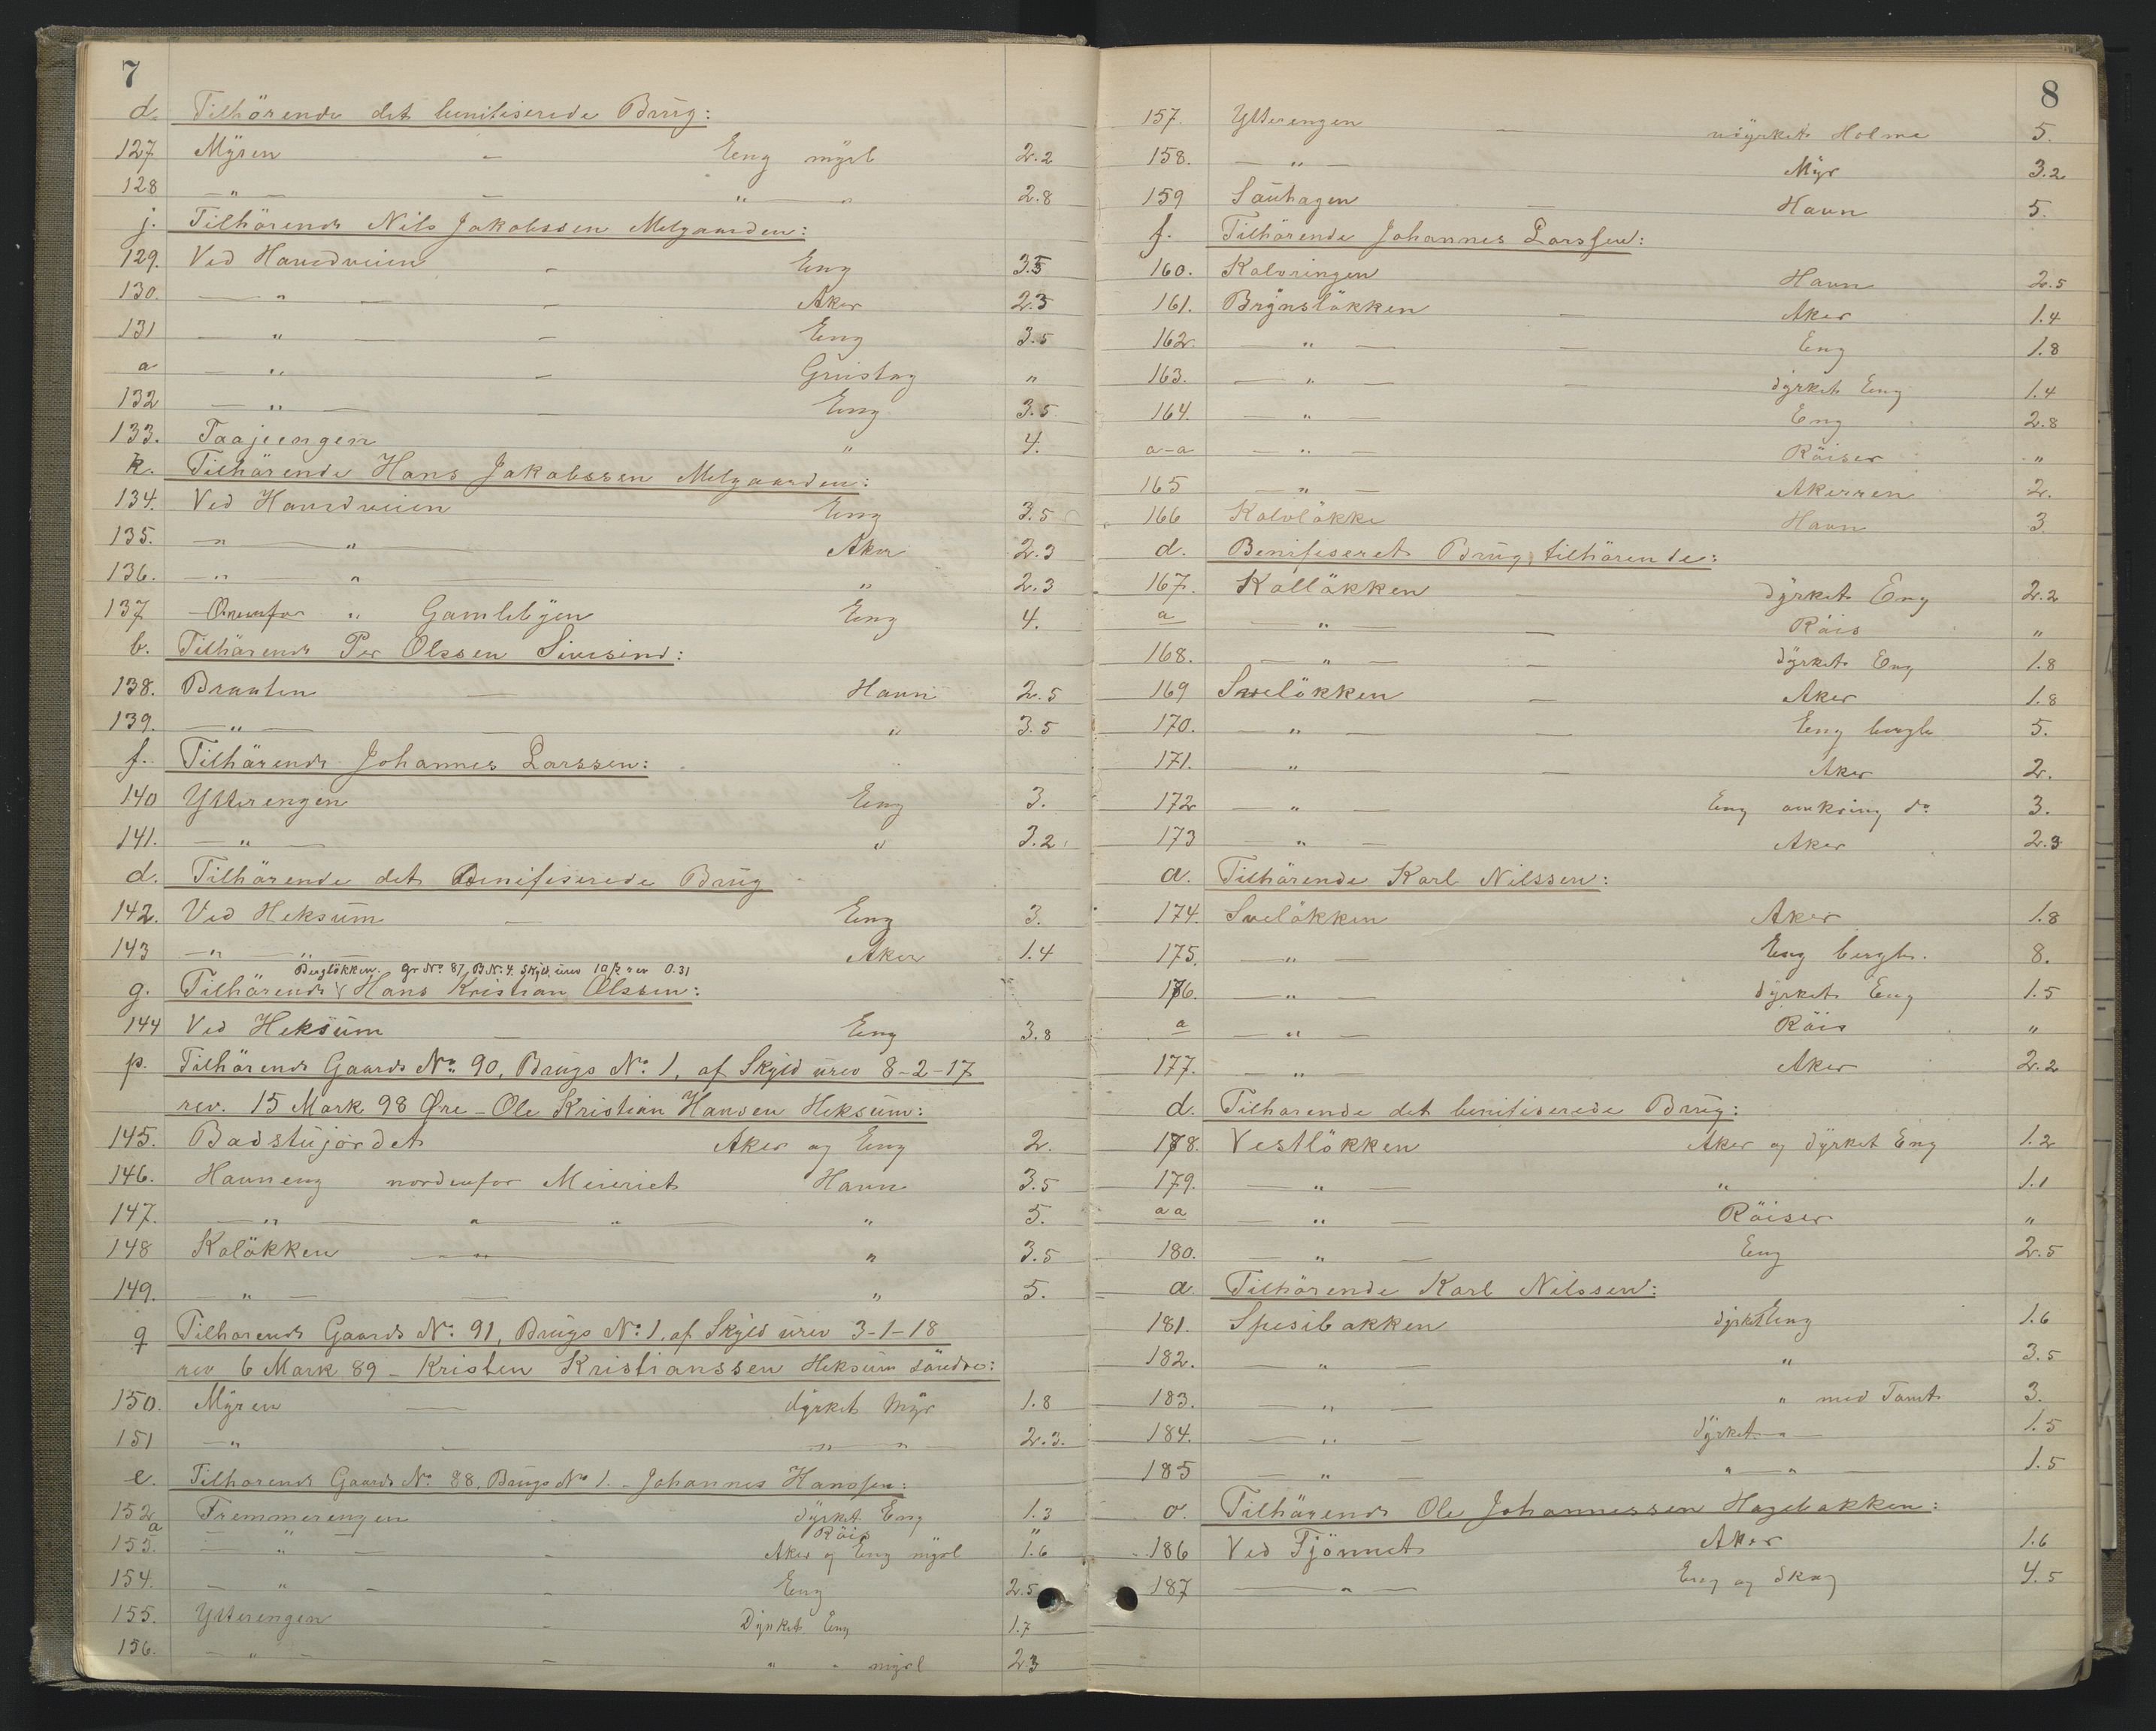 7
d. Tilhörende det benifiserede Brug:
127 Myren — Eng myrl 2.2
128 — „ — — „ — „ 2.8
j. Tilhörende Nils Jakobssen Melgaarden:
129. Ved Hovedveien — Eng 3.5
130. — „ — — Aker 2.3
131 — „ — — Eng 3.5
a — „ — Grustag „
132 — „ — — Eng 3.5
133. Taajeengen „ 4.
k. Tilhörende Hans Jakobssen Melgaarden:
134. Ved Hovedveien Eng 3.5
135. — „ — „ — Aker 2.3
136. — „ — „ — „ 2.3
137 Ovenfor „ Gamlebyen Eng 4.
b. Tilhörende Per Olssen Sivesind:
138. Braaten — Havn 2.5
139. — „ — — „ 3.5
f. Tilhörende Johannes Larssen:
140 Ytterengen Eng 3.
141. — „ — „ 3.2
d. Tilhörende det Benifiserede Brug
142. Ved Heksum — Eng 3.
143 — „ — „ — Aker 1.4
Berglökken. Gr No. 87, B. No. 4. Skyld urev 10 β rev 0.31
g. Tilhörende Hans Kristian Olssen:
144 Ved Heksum — Eng 3.8
p. Tilhörende Gaards No. 90, Brugs No. 1, af Skyld urev 8-2-17
rev. 15 Mark 98 Øre - Ole Kristian Hansen Heksum:
145. Badstujordet Aker og Eng 2.
146. Havneng nordenfor Meieriet Havn 3.5
147. — „ — „ — „ — „ 5.
148 Kolökken — „ — „ 3.5
149. — „ — — „ 5.
q Tilhörende Gaards No. 91, Brugs No. 1, af Skyld urev 3-1-18
rev 6 Mark 89 - Kristen Kristianssen Heksum söndre:
150. Myren — dyrket Myr 1.8
151 — „ — „ — „ — 2.3.
e. Tilhörende Gaards No. 88, Brugs No 1. - Johannes Hanssen:
152 Fremmerengen - dyrket Eng 1.3
a Röis „
153. — „ — - Aker og Eng myrl 1.6
154. — „ — - Eng 2.5
155. Ytterengen - Dyrket Eng 1.7
156. — „ — - „ „ myrl 2.3
8
157. Ytterengen — udyrket Holme 5.
158. — „ — Myr 3.2
159 Sauhagen — Havn 5.
f. Tilhörende Johannes Larssen:
160. Kalvringen Havn 2.5
161. Brynslökken — Aker 1.4
162. — „ — — Eng 1.8
163. — „ — — dyrket Eng 1.4
164. — „ — Eng 2.8
a-a — „ — Röiser „
165 — „ — Akerren 2.
166 Kalvlökke Havn 3
d. Benifiseret Brug, tilhörende:
167. Kollökken — dyrket Eng 2.2
a — „ — — Röis „
168. — „ — — dyrket Eng 1.8
169 Sveelökken — Aker 1.8
170. — „ — — Eng bergl. 5.
171. „ — — Aker 2.
172 — „ — Eng omkring do 3.
173 — „ — Aker 2.3
a. Tilhörende Karl Nilssen:
174. Svelökken Aker 1.8
175. — „ — Eng bergl. 8.
176. — „ — dyrket Eng 1.5
a — „ — Röis „
177. — „ — Aker 2.2
d. Tilhörende det benifiserede Brug:
178. Vestlökken Aker og dyrket Eng 1.2
179. — „ — „ 1.1
a a — „ — Röiser „
180. — „ — Eng 2.5
a Tilhörende Karl Nilssen:
181. Spesibakken dyrket Eng 1.6
182. — „ — „ 3.5
183. — „ — „ med Tomt 3.
184. — „ — dyrket — „ — 1.5
185 — „ — „ — „ — 1.5
o. Tilhörende Ole Johannessen Hagebakken:
186 Ved Tjönnet Aker 1.6
187 — „ — Eng og Skog 4.5